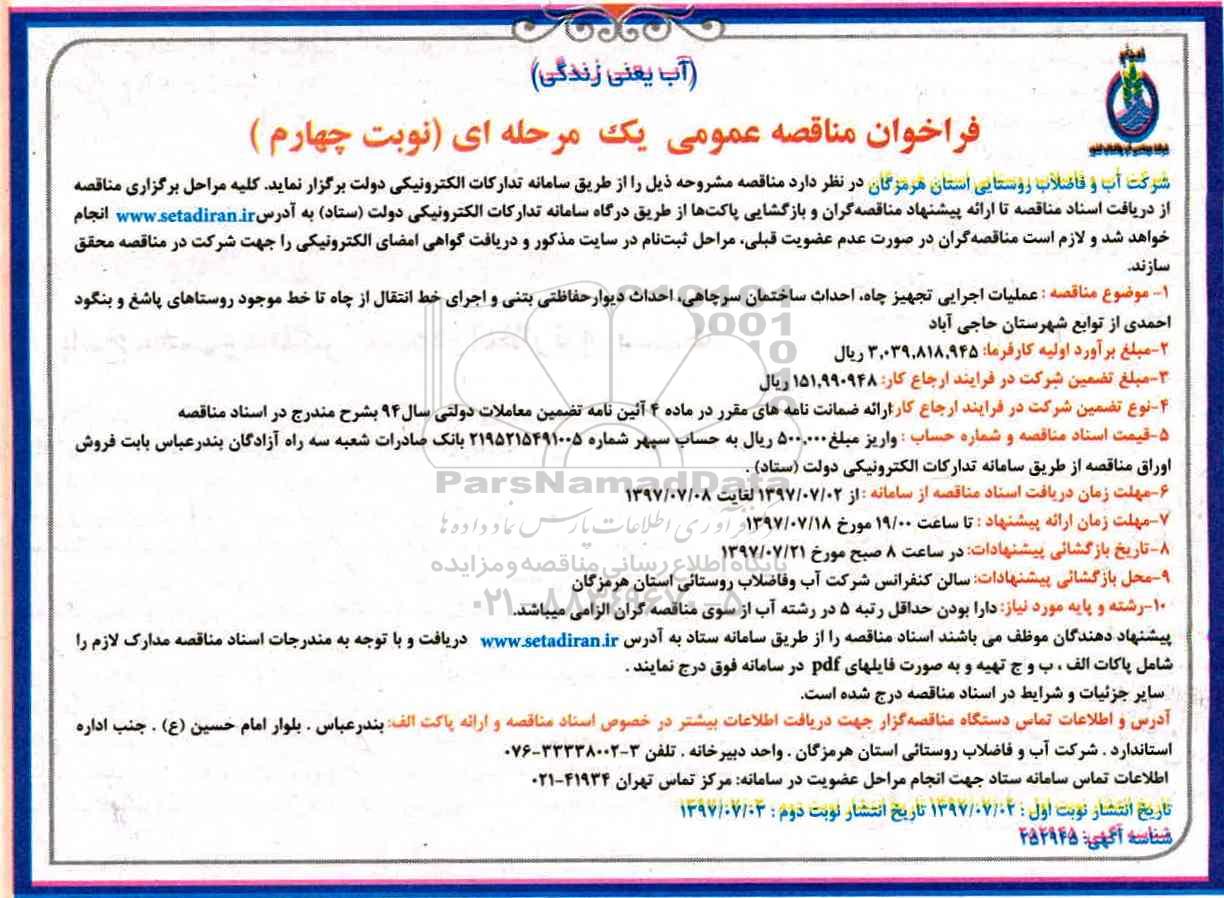 (آب یعنی زندگی)
فراخوان مناقصه عمومی یک مرحله ای (نوبت چهارم )
شرکت آب و فاضلاب روستایی استان هرمزگان در نظر دارد مناقصه مشروحه ذیل را از طریق سامانه تدارکات الکترونیکی دولت برگزار نماید. کلیه مراحل برگزاری مناقصه
از دریافت اسناد مناقصه تا ارائه پیشنهاد مناقصه‌گران و بازگشایی پاکت‌ها از طریق درگاه سامانه تدارکات الکترونیکی دولت (ستاد) به آدرس www.setadiran.ir انجام
خواهد شد و لازم است مناقصه‌گران در صورت عدم عضویت قبلی، مراحل ثبت‌نام در سایت مذکور و دریافت گواهی امضای الکترونیکی را جهت شرکت در مناقصه محقق
سازند.
۱- موضوع مناقصه : عملیات اجرایی تجهیز چاه، احداث ساختمان سرچاهی، احداث دیوارحفاظتی بتنی و اجرای خط انتقال از چاه تا خط موجود روستاهای پاشغ و بنگود
احمدی از توابع شهرستان حاجی آباد
۲-مبلغ برآورد اولیه کارفرما: ۳,۰۳۹,۸۱۸,۹۴۵ ریال
۳-مبلغ تضمین شرکت در فرایند ارجاع کار: ۱۵۱,۹۹۰۹۴۸ ریال
۴-نوع تضمین شرکت در فرایند ارجاع کار:ارائه ضمانت نامه های مقرر در ماده ۴ آئین نامه تضمین معاملات دولتی سال۹۴ بشرح مندرج در اسناد مناقصه
۵-قیمت اسناد مناقصه و شماره حساب : واریز مبلغ۵۰۰,۰۰۰ ریال به حساب سپهر شماره ۲۱۹۵۲۱۵۴۹۱۰۰۵ بانک صادرات شعبه سه راه آزادگان بندرعباس بابت فروش
اوراق مناقصه از طریق سامانه تدارکات الکترونیکی دولت (ستاد) .
۶-مهلت زمان دریافت اسناد مناقصه از سامانه : از ۱۳۹۷/۰۷/۰۲ لغایت ۱۳۹۷/۰۷/۰۸
۷-مهلت زمان ارائه پیشنهاد : تا ساعت ۱۹/۰۰ مورخ ۱۳۹۷/۰۷/۱۸
۸-تاریخ بازگشائی پیشنهادات: در ساعت ۸ صبح مورخ ۱۳۹۷/۰۷/۲۱
۹-محل بازگشائی پیشنهادات: سالن کنفرانس شرکت آب وفاضلاب روستائی استان هرمزگان
۱۰-رشته و پایه مورد نیاز: دارا بودن حداقل رتبه ۵ در رشته آب از سوی مناقصه گران الزامی میباشد.
پیشنهاد دهندگان موظف می باشند اسناد مناقصه را از طریق سامانه ستاد به آدرس www.setadiran.ir دریافت و با توجه به مندرجات اسناد مناقصه مدارک لازم را
شامل پاکات الف ، ب و ج تهیه و به صورت فایلهای pdf در سامانه فوق درج نمایند .
سایر جزئیات و شرایط در اسناد مناقصه درج شده است.
آدرس و اطلاعات تماس دستگاه مناقصه‌گزار جهت دریافت اطلاعات بیشتر در خصوص اسناد مناقصه و ارائه پاکت الف: بندرعباس . بلوار امام حسین (ع) . جنب اداره
استاندارد . شرکت آب و فاضلاب روستائی استان هرمزگان . واحد دبیرخانه . تلفن ۳-۳۳۳۳۸۰۰۲-۰۷۶
اطلاعات تماس سامانه ستاد جهت انجام مراحل عضویت در سامانه: مرکز تماس تهران ۴۱۹۳۴-۰۲۱
تاریخ انتشار نوبت اول : ۱۳۹۷/۰۷/۰۲ تاریخ انتشار نوبت دوم : ۱۳۹۷/۰۷/۰۳
شناسه آگهی: ۲۵۲۹۴۵
ParsNamadData
مرکز فرآوری اطلاعات پارس نماد داده ها
پایگاه اطلاع رسانی مناقصه و مزایده